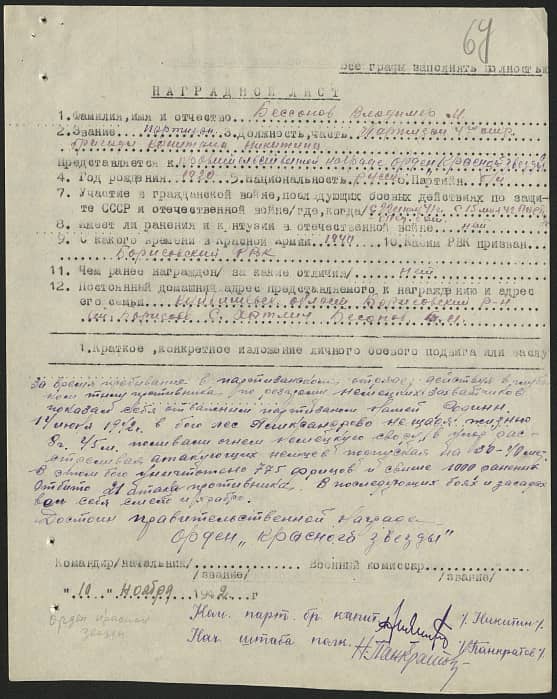 64
все графы заполнять полностью
НАГРАДНОЙ ЛИСТ
1. Фамилия, имя и отчество Бессонов Владимир И.
2. Звание партизан 3. Должность, часть Партизан
бригады капитана Никитина
Представляется к правительственной награде орден Красной звезды
4. Год рождения 1920 5. Национальность русск 6. Партийн. б/п
7. Участие в гражданской войне, последующих боевых действиях по защи-
те СССР и отечественной войне/где, когда/
8. Имеет ли ранения и к нтузии в отечественной войне
9. С какого времени в Красной Армии 1940 10. Каким РВК призван
Борисовский РВК
11. Чем ранее награжден/ за какие отличия/
12. Постоянный домашний адрес представляемого к награждению и адрес
его семьи область Борисовский р-н
1. Краткое, конкретное изложение личного боевого подвига или заслу
За время пребывания в партизанском отряде, действуя в глубо-
ком тылу противника, по разгрому немецких захватчиков
показал себя отважным партизаном нашей Родины.
июня 1942. в бою лес не щадя жизню
поливал огнем немецкую свору, в упор рас-
стреливая атакующих немцев подпуская на
В этом бою уничтожено 775 фрицов и свыше 1000 раненых
Отбито 21 атака противника. В последующих боях и засадах
вел себя смело и храбро.
Достоин правительственной награда
Орден "Красной звезды"
Командир/начальник/ Военный комиссар
/звание/ /звание/
"10" Ноября 1942 г
орден красной
звезды
Ком. парт. бр. капит. /Никитин/
Нач. штаба полк. Н. Панкратов /Панкратов/